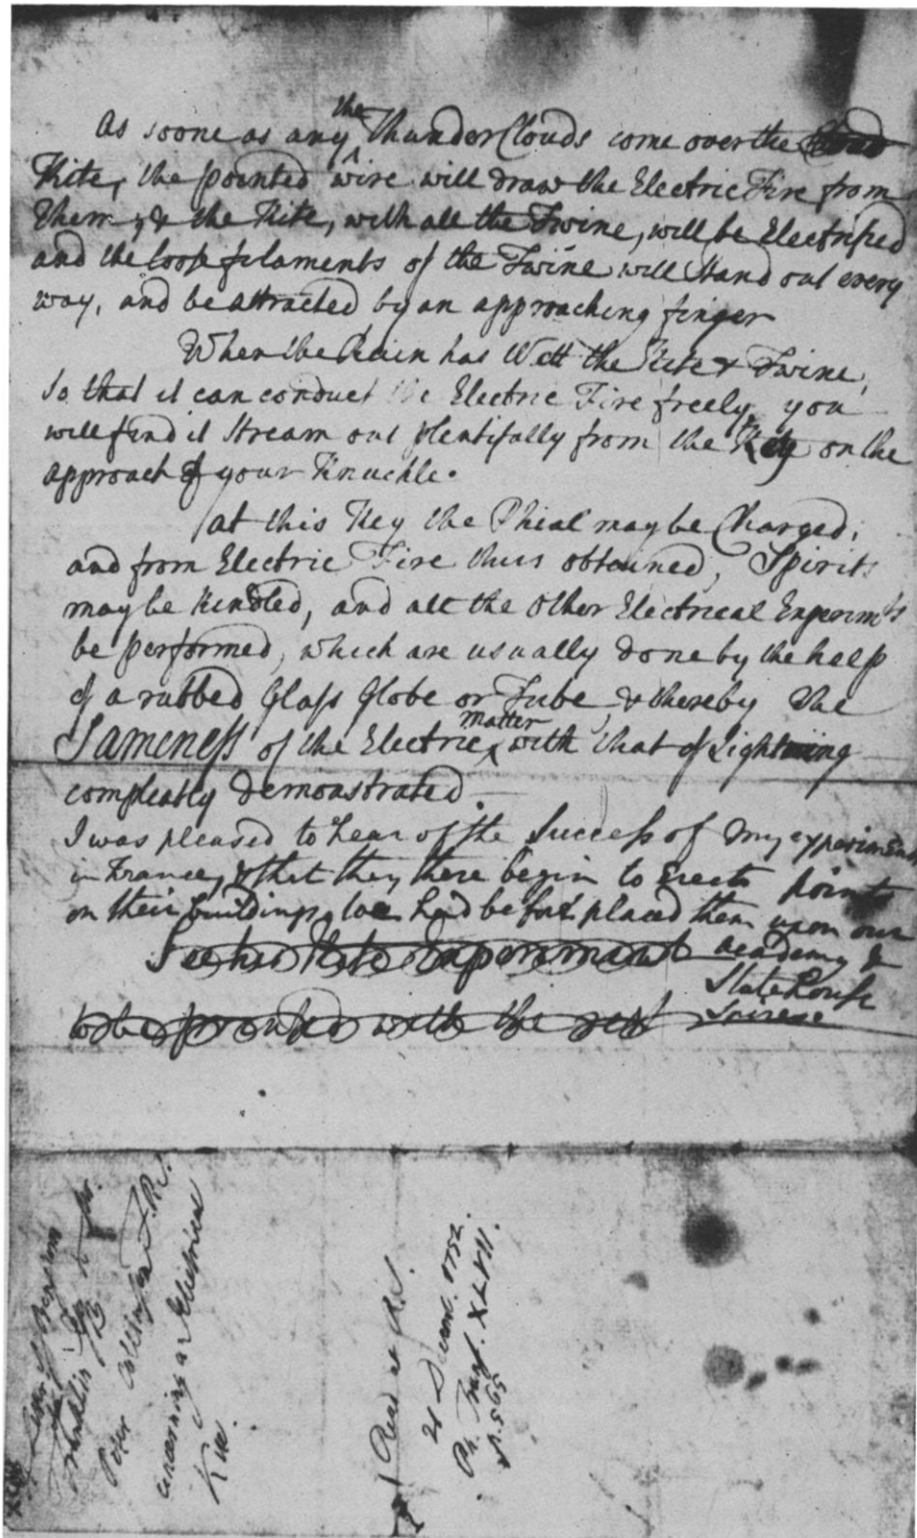 As soone as any the Thunder Clouds come over the
Kite, the pointed wire will draw the Electric Fire from
them, & the Kite, with all the Twine, will be Electrified
and the loose filaments of the Twine will stand out every
way, and be attracted by an approaching finger
When the Rain has Wett the Kite & Twine,
so that it can conduct the Electric Fire freely, you
will find it stream out plentifully from the Key on the
approach of your Knuckle.
at this Key the Phial may be Charged,
and from Electric Fire thus obtained, Spirits
may be Kindled, and all the Other Electrical Experimts
be performed, which are usually done by the help
of a rubbed Glass Globe or Tube, & thereby the
Sameness of the Electric matter with that of Lightning
compleatly demonstrated.
I was pleased to hear of the Success of my experiments
in France, & that they there begin to Erect points
on their buildings, we had before placed them upon our
academy &
State house
Spires
See his Kite Experiment
to be printed with the rest
Benjamin
Franklin Esq to Mr.
Peter Collinson F.R.S.
concerning an Electrical
Kite.
Read at R.S.
21 Decemb. 1752.
Ph. Trans. XLVII.
p. 565